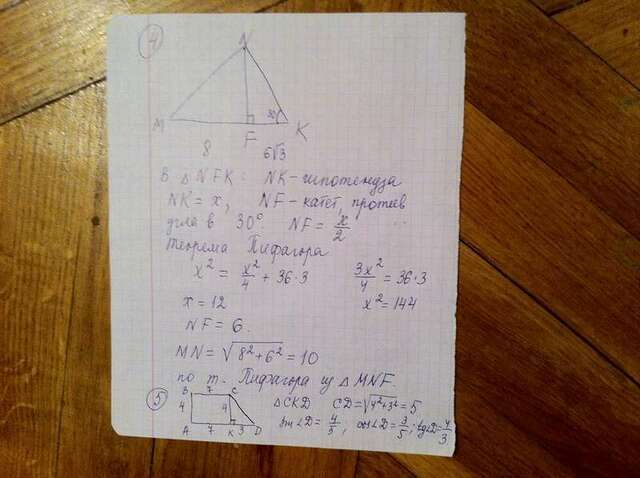 4
N
30
M F K
8 6√3
В △NFK: NK - гипотенуза
NK = x, NF - катет, против
угла в 30° NF = x/2
теорема Пифагора
x² = x²/4 + 36·3 3x²/4 = 36·3
x = 12 x² = 144
NF = 6.
MN = √8²+6² = 10
по т. Пифагора из △MNF.
5
B 7 C
4 4
A 7 K 3 D
△CKD CD = √4²+3² = 5
sin∠D = 4/5, cos∠D = 3/5; tg∠D = 4/3